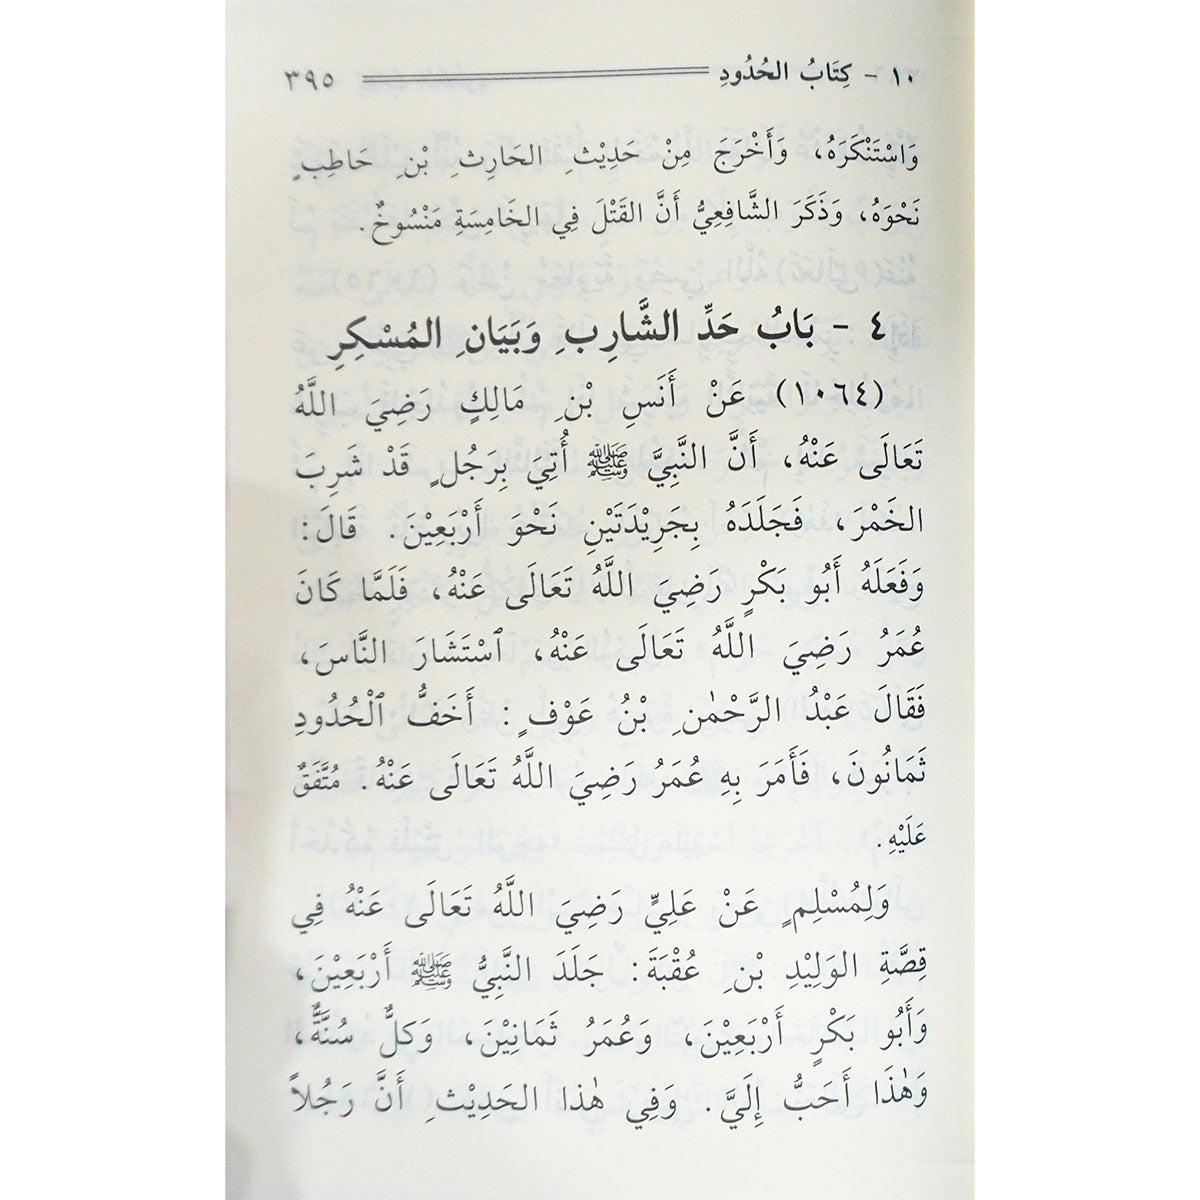 ١٠ - كِتَابُ الحُدُودِ ٣٩٥
وَاسْتَنْكَرَهُ، وَأَخْرَجَ مِنْ حَدِيْثِ الحَارِثِ بْنِ حَاطِبٍ
نَحْوَهُ، وَذَكَرَ الشَّافِعِيُّ أَنَّ القَتْلَ فِي الخَامِسَةِ مَنْسُوخٌ.
٤ - بَابُ حَدِّ الشَّارِبِ وَبَيَانِ المُسْكِرِ
(١٠٦٤) عَنْ أَنَسِ بْنِ مَالِكٍ رَضِيَ اللَّهُ
تَعَالَى عَنْهُ، أَنَّ النَّبِيَّ ﷺ أُتِيَ بِرَجُلٍ قَدْ شَرِبَ
الخَمْرَ، فَجَلَدَهُ بِجَرِيْدَتَيْنِ نَحْوَ أَرْبَعِيْنَ. قَالَ:
وَفَعَلَهُ أَبُو بَكْرٍ رَضِيَ اللَّهُ تَعَالَى عَنْهُ، فَلَمَّا كَانَ
عُمَرُ رَضِيَ اللَّهُ تَعَالَى عَنْهُ، ٱسْتَشَارَ النَّاسَ،
فَقَالَ عَبْدُ الرَّحْمٰنِ بْنُ عَوْفٍ: أَخَفُّ ٱلْحُدُودِ
ثَمَانُونَ، فَأَمَرَ بِهِ عُمَرُ رَضِيَ اللَّهُ تَعَالَى عَنْهُ. مُتَّفَقٌ
عَلَيْهِ.
وَلِمُسْلِمٍ عَنْ عَلِيٍّ رَضِيَ اللَّهُ تَعَالَى عَنْهُ فِي
قِصَّةِ الوَلِيْدِ بْنِ عُقْبَةَ: جَلَدَ النَّبِيُّ ﷺ أَرْبَعِيْنَ،
وَأَبُو بَكْرٍ أَرْبَعِيْنَ، وَعُمَرُ ثَمَانِيْنَ، وَكلٌّ سُنَّةٌ،
وَهٰذَا أَحَبُّ إِلَيَّ. وَفِي هٰذا الحَدِيْثِ أَنَّ رَجُلاً